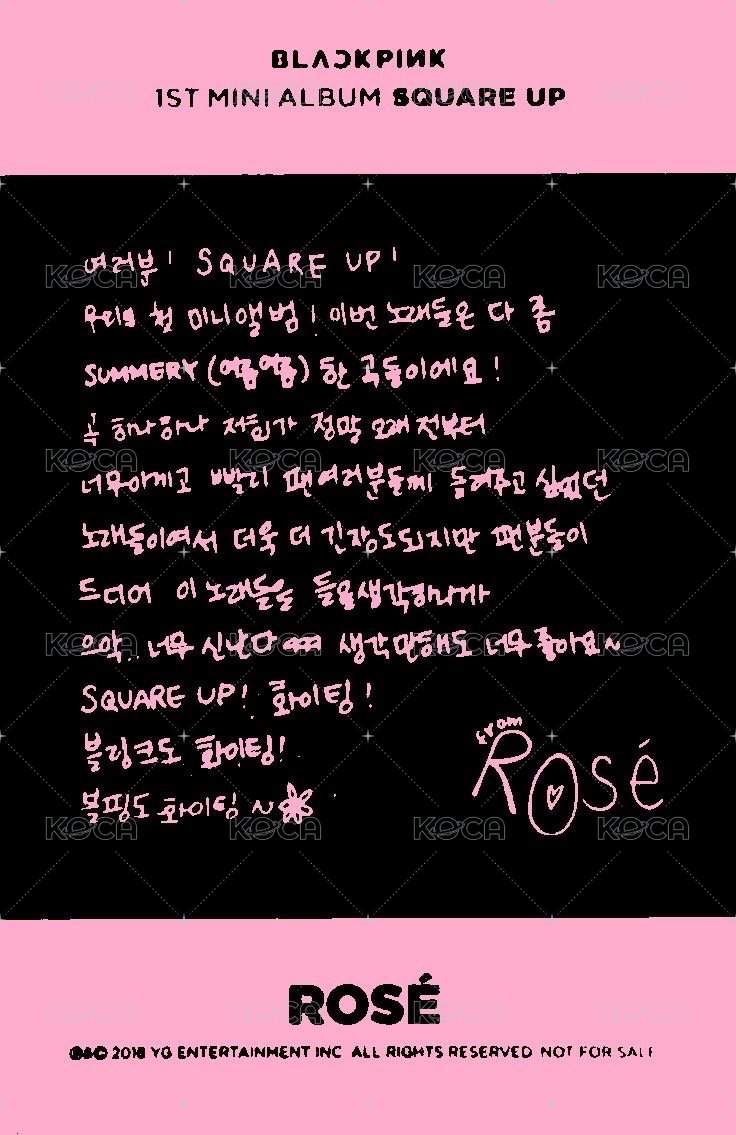 BLACKPINK
1ST MINI ALBUM SQUARE UP
여러분! SQUARE UP!
우리의 첫 미니앨범! 이번 노래들은 다 좀
SUMMERY (여름여름) 한 곡들이에요!
곡 하나하나 저희가 정말 오래 전부터
너무아끼고 빨리 팬여러분들께 들려주고 싶었던
노래들이여서 더욱 더 긴장도되지만 팬분들이
드디어 이 노래들을 들을생각하니까
으악.. 너무 신난다 생각만해도 너무좋아요~
SQUARE UP! 화이팅!
블링크도 화이팅!
블핑도 화이팅~
from
ROSÉ
ROSÉ
℗&© 2018 YG ENTERTAINMENT INC. ALL RIGHTS RESERVED NOT FOR SALE
KOCA